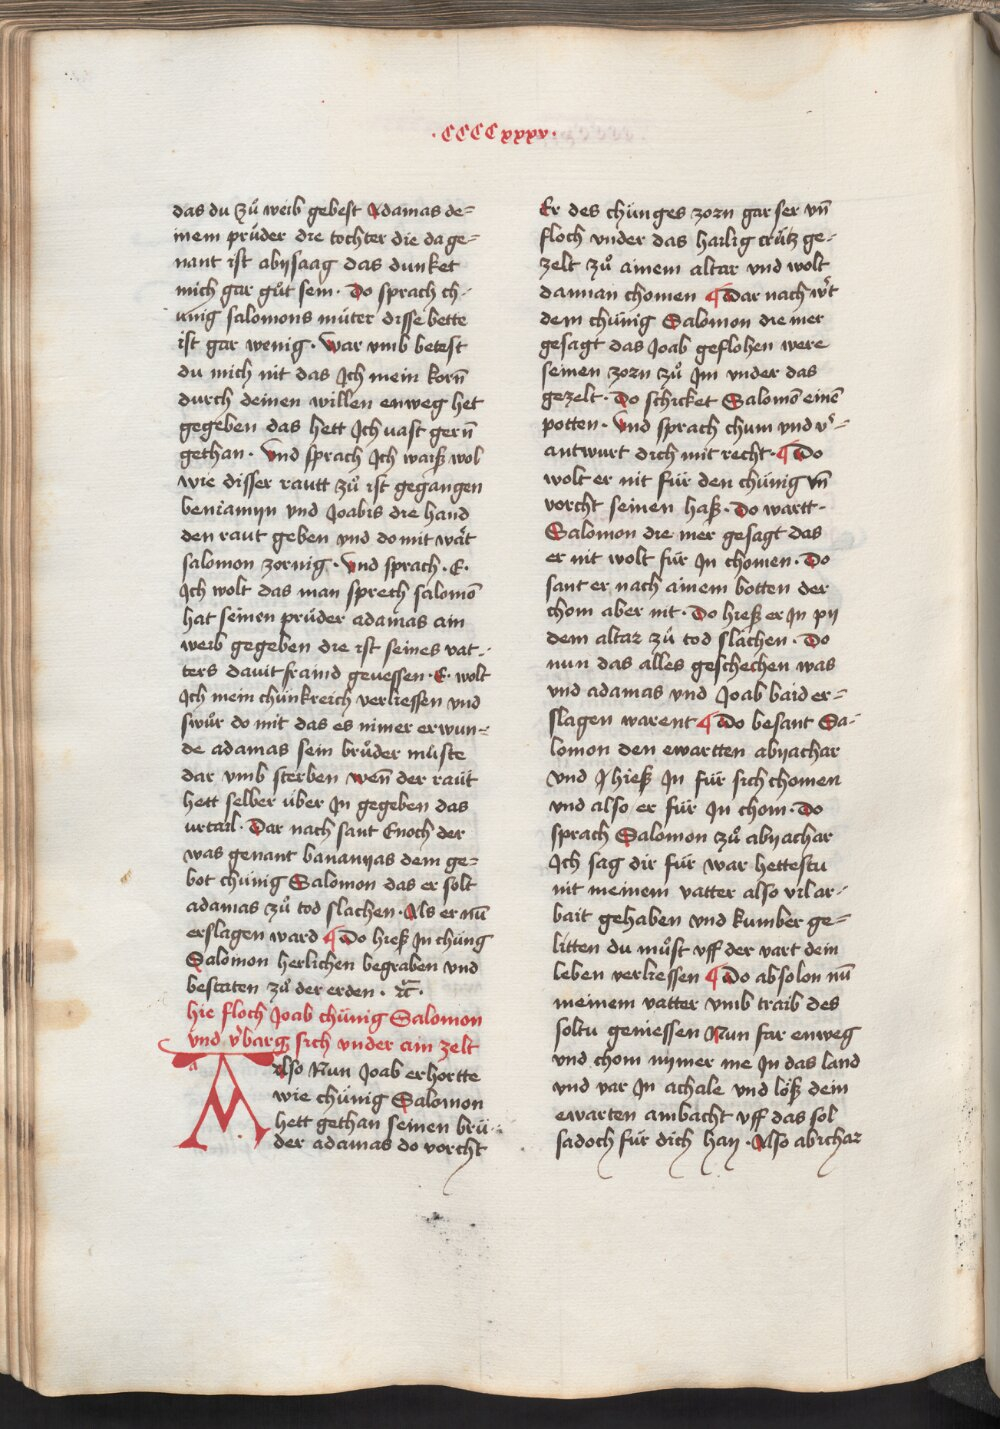 ·CCCCxxxv·
das du zů weib gebest Adamas de=
inem průder die tochter die da ge=
nant ist abysaag das dunket
mich gar gůt sein · Do sprach ch=
ünig salomons můter disse bette
ist gar wenig · War vmb betest
du mich nit das Ich mein korn̄
durch deinen willen enweg het
gegeben das hett Ich vast gern̄
gethan · Vnd sprach Ich waiß wol
wie disser rautt zů ist gegangen
beniamyn vnd Joabis die hand
den raut geben vnd do mit wa͛t
salomon zornig · Vnd sprach · E ·
Ich wolt das man sprech salomō
hat seinen prüder adamas ain
weib gegeben die ist seines vat=
ters dauit fraind gewessen · E · wolt
Ich mein chünkreich verliessen vnd
swůr do mit das es nimer erwun=
de adamas sein brůder müste
dar vmb sterben wen̄ der raut
hett selber über In gegeben das
vrtail · Dar nach sant Enoch der
was genant bananyas dem ge=
bot chünig Salomon das er solt
adamas zů tod slachen · Als er nū
erslagen ward ¶ Do hieß In chüng
Salomon herlichen begraben vnd
bestaten zů der erden · ꝛc̄ ·
hie floch Joab chünig Salomon
vnd v͛barg sich vnder ain zelt
Also Nun Joab erhortte
wie chünig Salomon
hett gethan seinen brü=
der adamas do vorcht
Er des chünges zorn gar ser vn̄
floch vnder das hailig crütz ge=
zelt zů ainem altar vnd wolt
dannan chomen ¶ Dar nach w͛t
dem chünig Salomon die mer
gesagt das Joab geflohen were
seinen zorn zů Im vnder das
gezelt · Do schicket Salomō einē
potten · Vnd sprach chum vnd v͛=
antwurt dich mit recht · ¶ Do
wolt er nit für den chünig vn̄
vorcht seinen haß · Do wartt
Salomon die mer gesagt das
er nit wolt für In chomen · Do
sant er nach ainem botten der
chom aber nit · Do hieß er In py
dem altar zů tod slachen · Do
nun das alles geschechen was
vnd adamas vnd Joab baid er=
slagen warent ¶ Do besant Sa=
lomon den ewartten abyachar
vnd hieß In für sich chomen
vnd also er für In chom · Do
sprach Salomon zů abyachar
Ich sag dir für war hettestu
nit meinem vatter also vil ar=
bait gehaben vnd kumber ge=
litten du můst vff der vart dein
leben verliessen ¶ Do absolon nū
meinem vatter vmb traib des
soltu geniessen Nun far enweg
vnd chom nymer me In das land
vnd var In achale vnd löß dein
ewarten ambacht vff das sol
sadoch für dich han · Also abichar